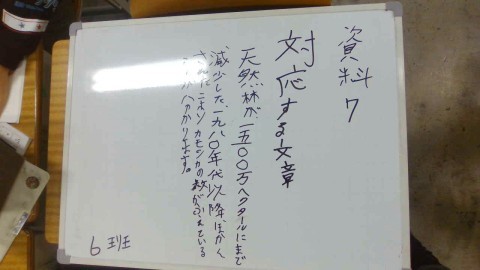 資料7
対応する文章
天然林が、一五〇〇万ヘクタールにまで
減少した、一九八〇年代以降、ほかく
さんに ニホンカモシカの数がふえている
ことが分かります。
6班